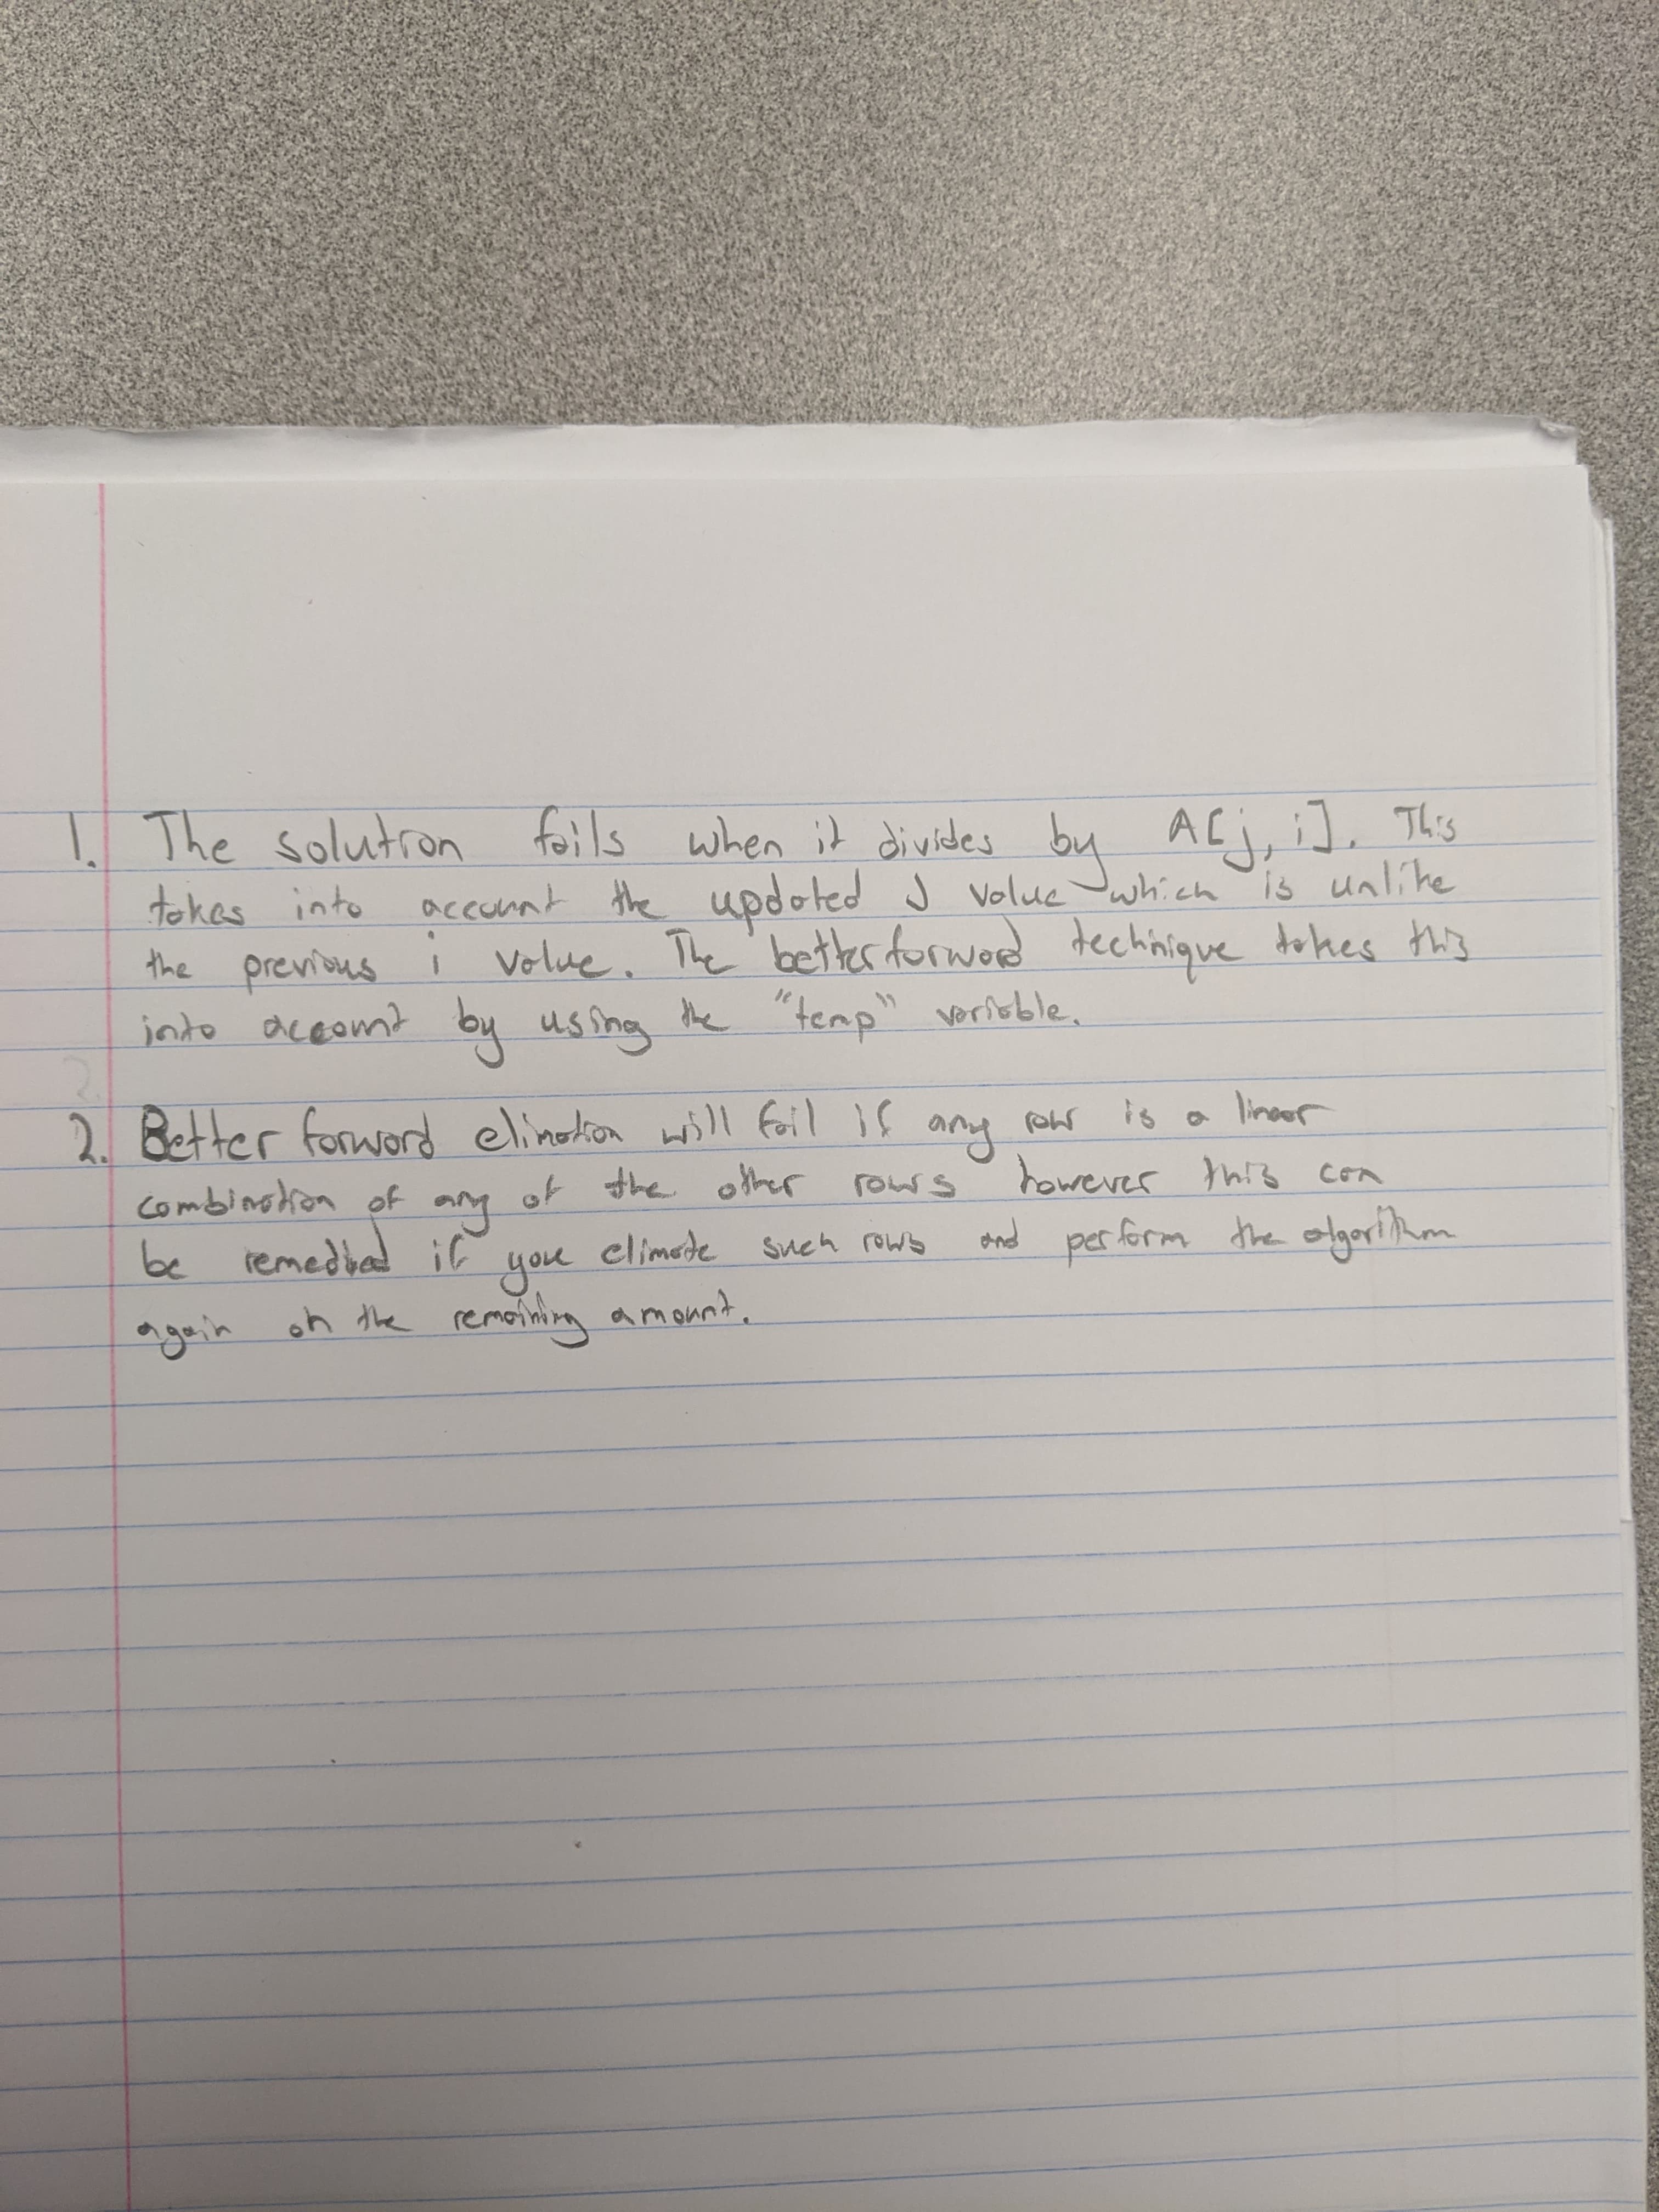 1. The solution fails when it divides by A[j, i]. This
takes into account the updated J value which is unlike
the previous i value. The betterforward technique takes this
into account by using the "temp" variable.
2.
2. Better forward elimation will fail if any row is a linear
combination of any of the other rows however this can
be remedied if you elimate such rows and perform the algorithm
again on the remaining amount.